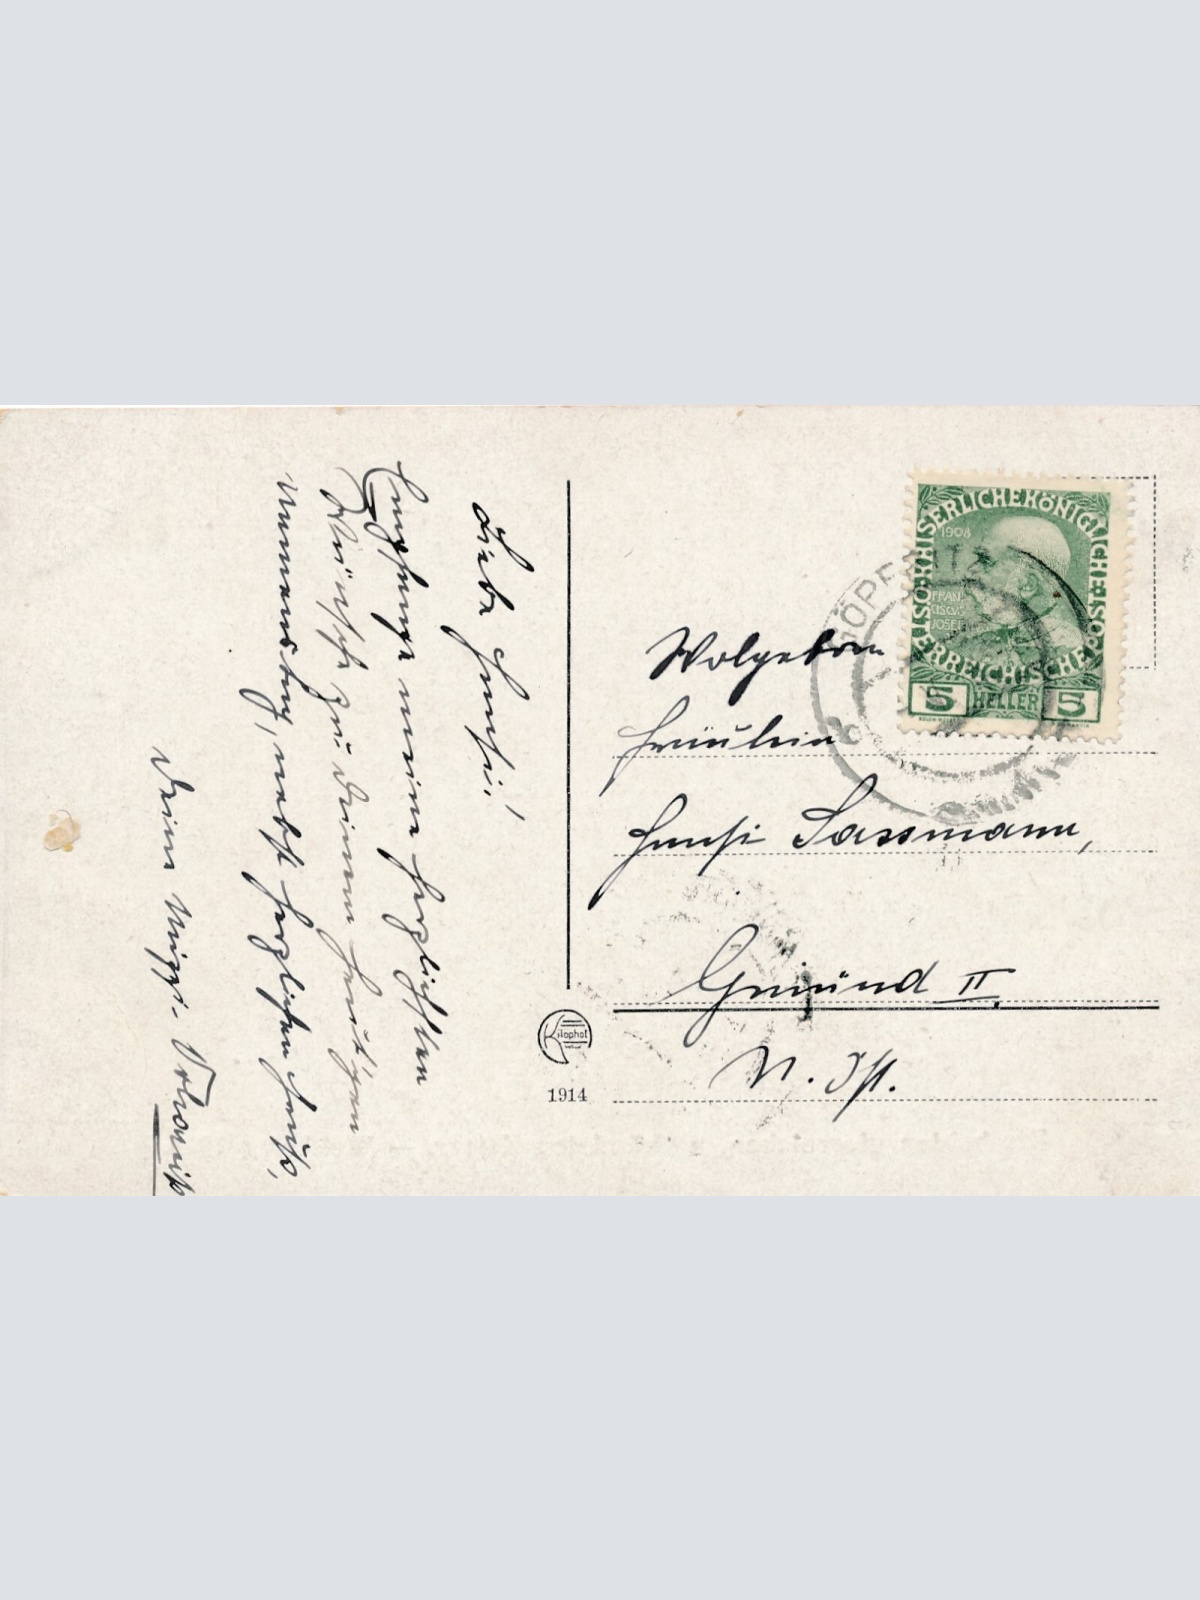 Liebe Hansi!
Empfange meine herzlichsten
Wünsche zu Deinem heutigen
Namenstag, nebst herzlichen Gruß,
Deine Mizzi
Wolgeborn
Fräulein
Hansi Sassmann,
Gmünd II.
N. Öst.
KAISERLICHE KÖNIGLICHE ÖSTERREICHISCHE
1908
FRAN
CISCVS
JOSEF
5 HELLER 5
Kilophot
1914